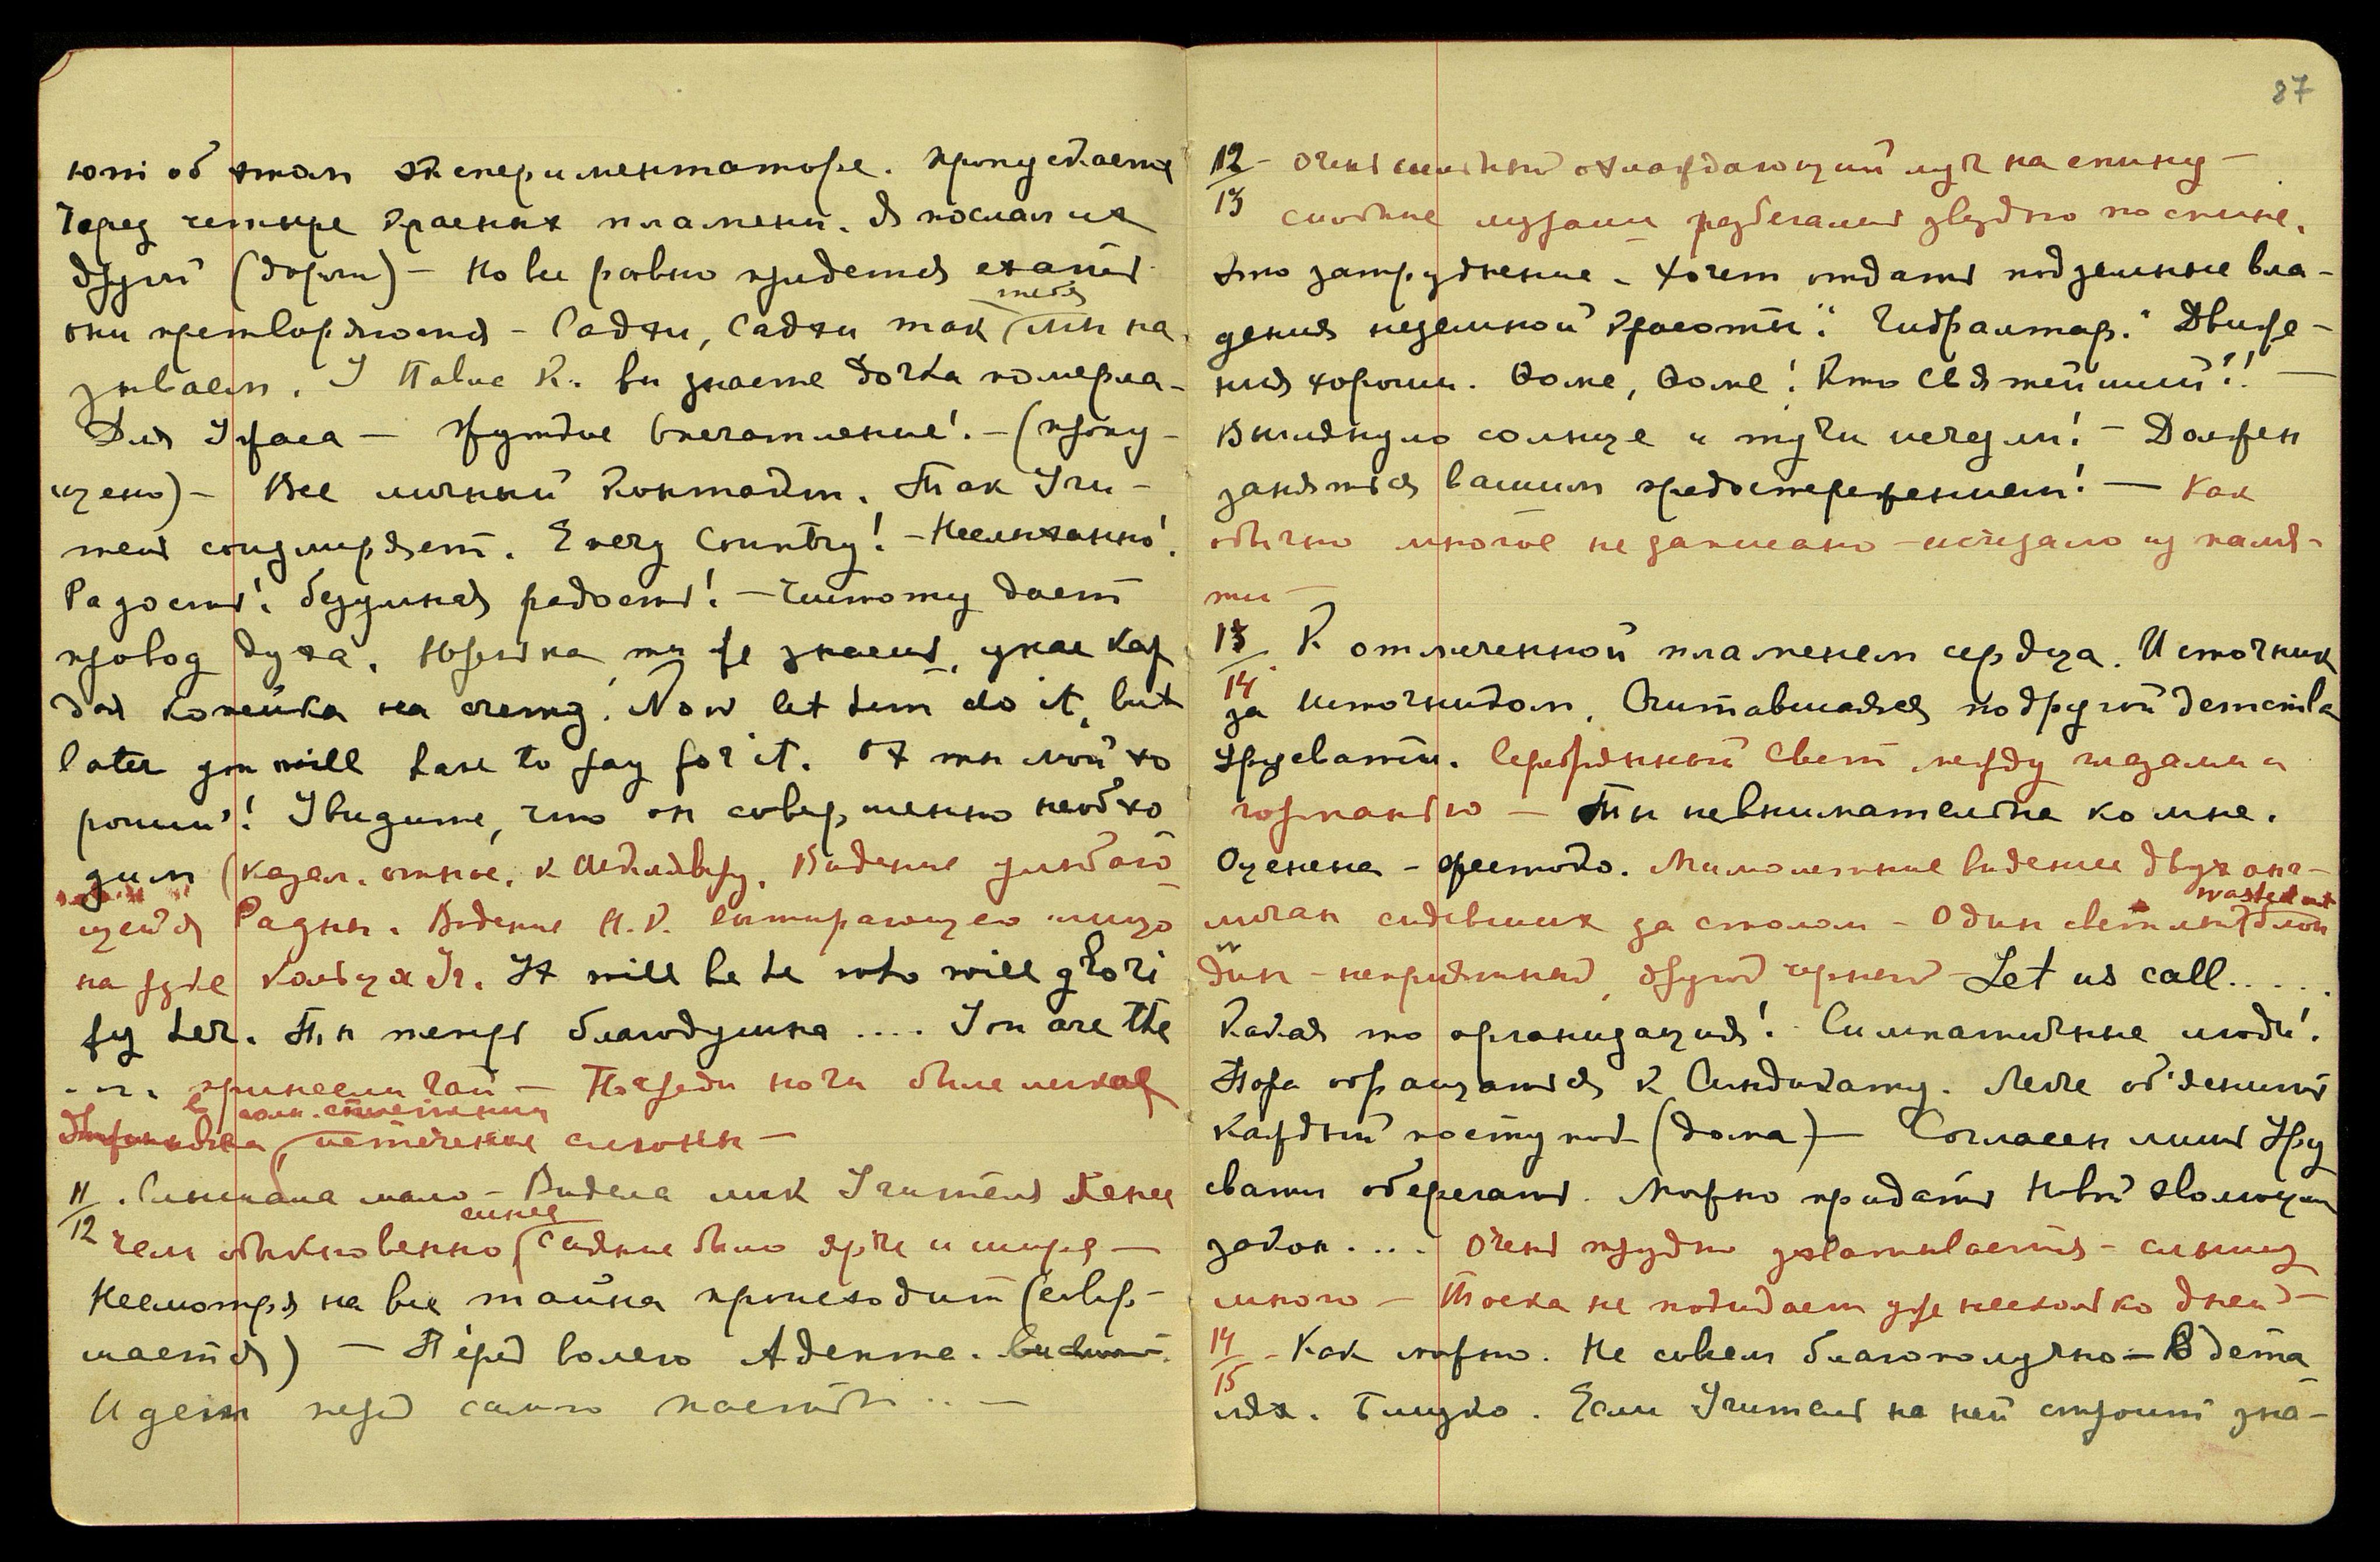 ют об этом экспериментаторе. Пропускается
Через четыре красных пламени. Я послал их
другой (дороги) – Но все равно придется ехать
они претворяются – Садхи, Садхи так тебя мы на
зываем. У Павла К. вы знаете дочка померла –
Для Уфаса – жуткое впечатление! – (пропу –
щено) – Все личный контакт. Так Учи –
тель соизмеряет. Every Country! – Неслыханно!
Радость! безумная радость! – Чистому дает
провод духа. Юрелька, ты же знаешь, у нас каж
дая копейка на счету. Now let him do it, but
later you will have to pay for it. Ох ты мой хо
роший! Увидите, что он совершенно необхо
дим (казал. относ. к Видение улыбаю
щейся Радны. Видение Н.К. вытирающего лицо
на руке кольца Уч. It will be he who will glori
fy her. Ты теперь благодушна .... You are the
.... принесли чай – Посреди ночи было
истечение слюны –
11/12. Слышала мало – Видела лик Учителя яснее
чем обыкновенно синее сияние было ярче и шире –
Несмотря на все тайна происходит (совер –
шается) – Перед волею Адепта.
Идет перед самою пастью .. –
87
12/13 – Очень сильный охлаждающий луч на спину –
словно лучами разбегался звездно по спине.
Это затруднение – Хочет отдать подземные вла –
дения неземной красоты." Гибралтар." Движе –
ния хороши. Фоме, Фоме! Кто Святейший?! –
Выглянуло солнце и тучи исчезли! – Должен
заняться вашим предостережением! – Как
обычно многое не записано – исчезало из памя –
ти –
13/14 К отмеченной пламенем сердца. Источник
за источником. Считавшаяся подругой детства
Урусвати. Серебрянный свет между глазами и
гортанью – Ты невнимательна ко мне.
Оценена – жестоко. Мимолетное видение двух анг –
личан сидевших за столом – Один светлый washed out блон
дин – неприятный, другой черный – Let us call.....
Какая то организация! Симпатичные люди!
Пора обращаться к Синдикату. Легче об'яснить
каждый поступок (дома) – Согласен лишь Уру
свати оберегать. Можно придать Новый эволюции
закон .... Очень трудно улавливается – слышу
много – Тоска не покидает уже несколько дней –
14/15 – Как можно. Не совсем благополучно – В дета
лях. Близко. Если Учитель на ней строит зна –